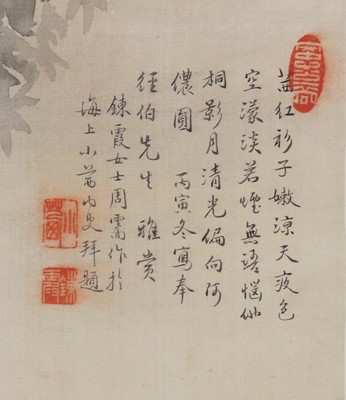 茜红衫子嫩凉天夜色
空濛淡若烟無语惱他
桐影月清光偏向阿
儂圓 丙寅冬寫奉
徑伯先生 雅賞
鍊霞女士周霱作於
海上小茜内史拜題